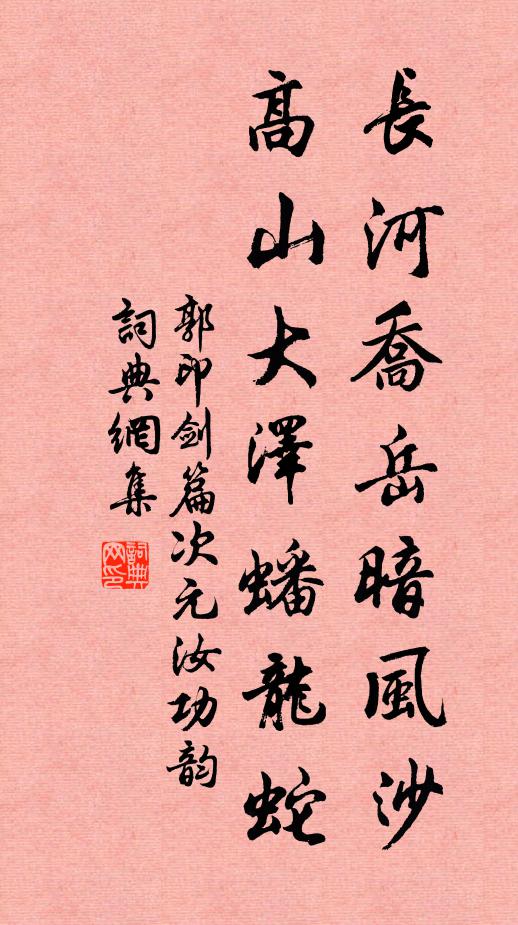 長河喬岳暗風沙
高山大澤蟠龍蛇
郭印剑篇次元汝功韵
詞典網集
詞典
网印